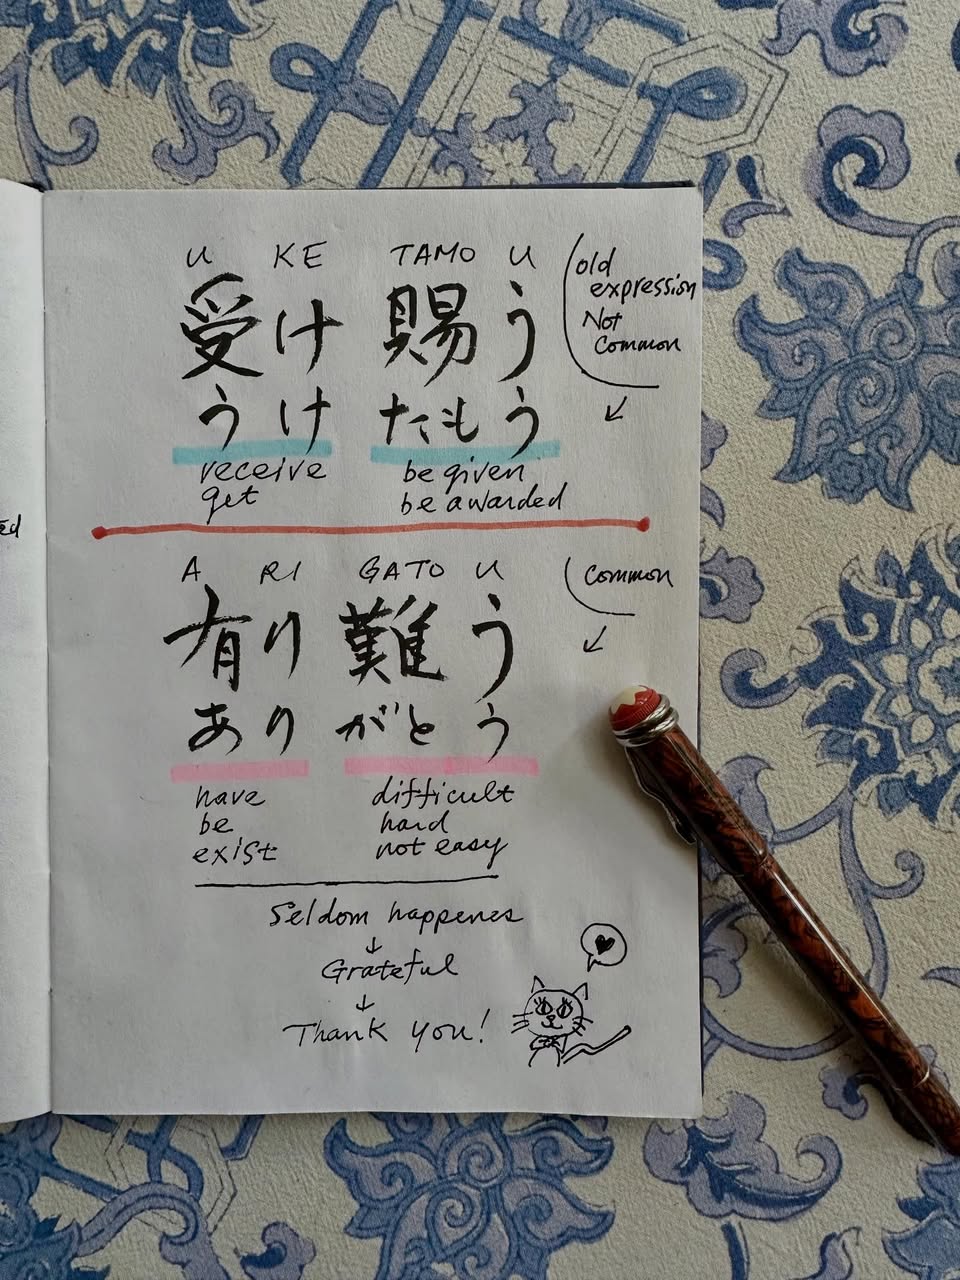 U KE TAMO U
受け賜う
うけ たもう
receive be given
get be awarded
old
expression
Not
Common
↙
A RI GATO U
有り難う
あり がとう
have difficult
be hard
exist not easy
Common
↙
Seldom happenes
↓
Grateful
↓
Thank you!